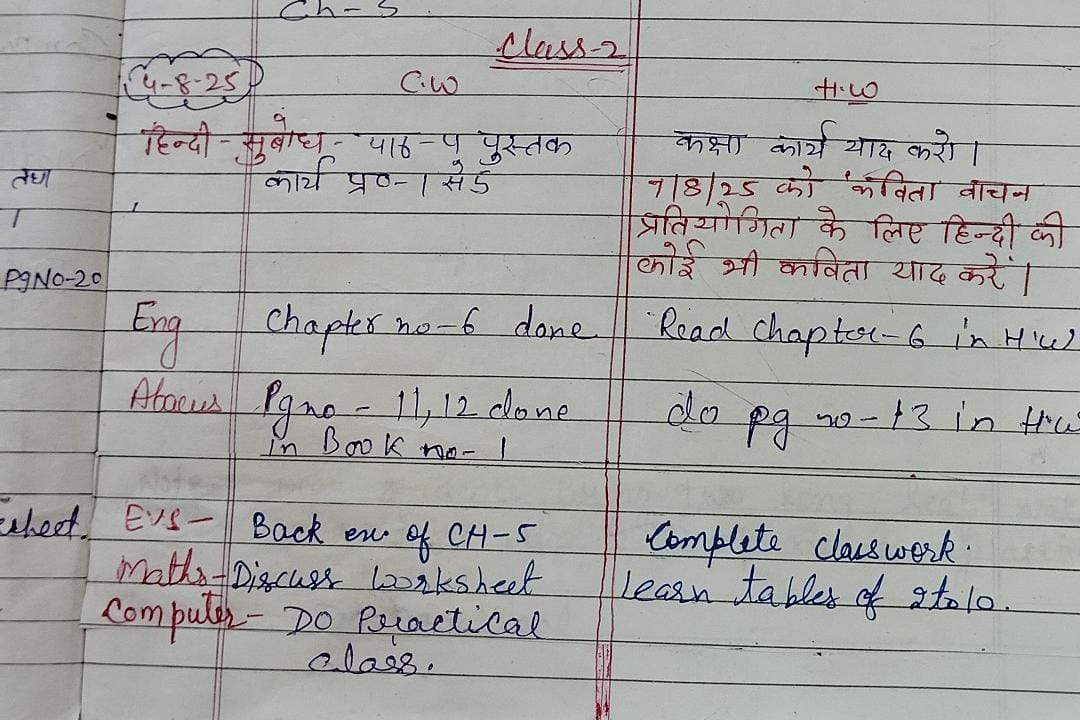 Ch-5
Class-2
4-8-25 C.W H.W
हिन्दी - सुबोध - पाठ-5 पुस्तक कक्षा कार्य याद करो।
तथा कार्य प्र०-1 से 5 7/8/25 को कविता वाचन
। प्रतियोगिता के लिए हिन्दी की
PgNO-20 कोई भी कविता याद करें।
Eng Chapter no-6 done Read Chapter-6 in H.W
Abacus Pg no - 11,12 done do pg no-13 in H.W
in Book no-1
EVS- Back exe of CH-5 Complete classwork.
Maths- Discuss Worksheet Learn tables of 2 to 10.
Computer- DO Practical
class.